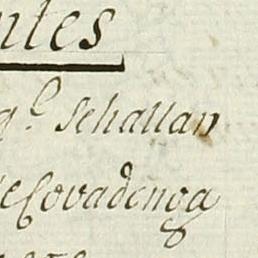 ntes
q.^e Sehallan
e Covadonga